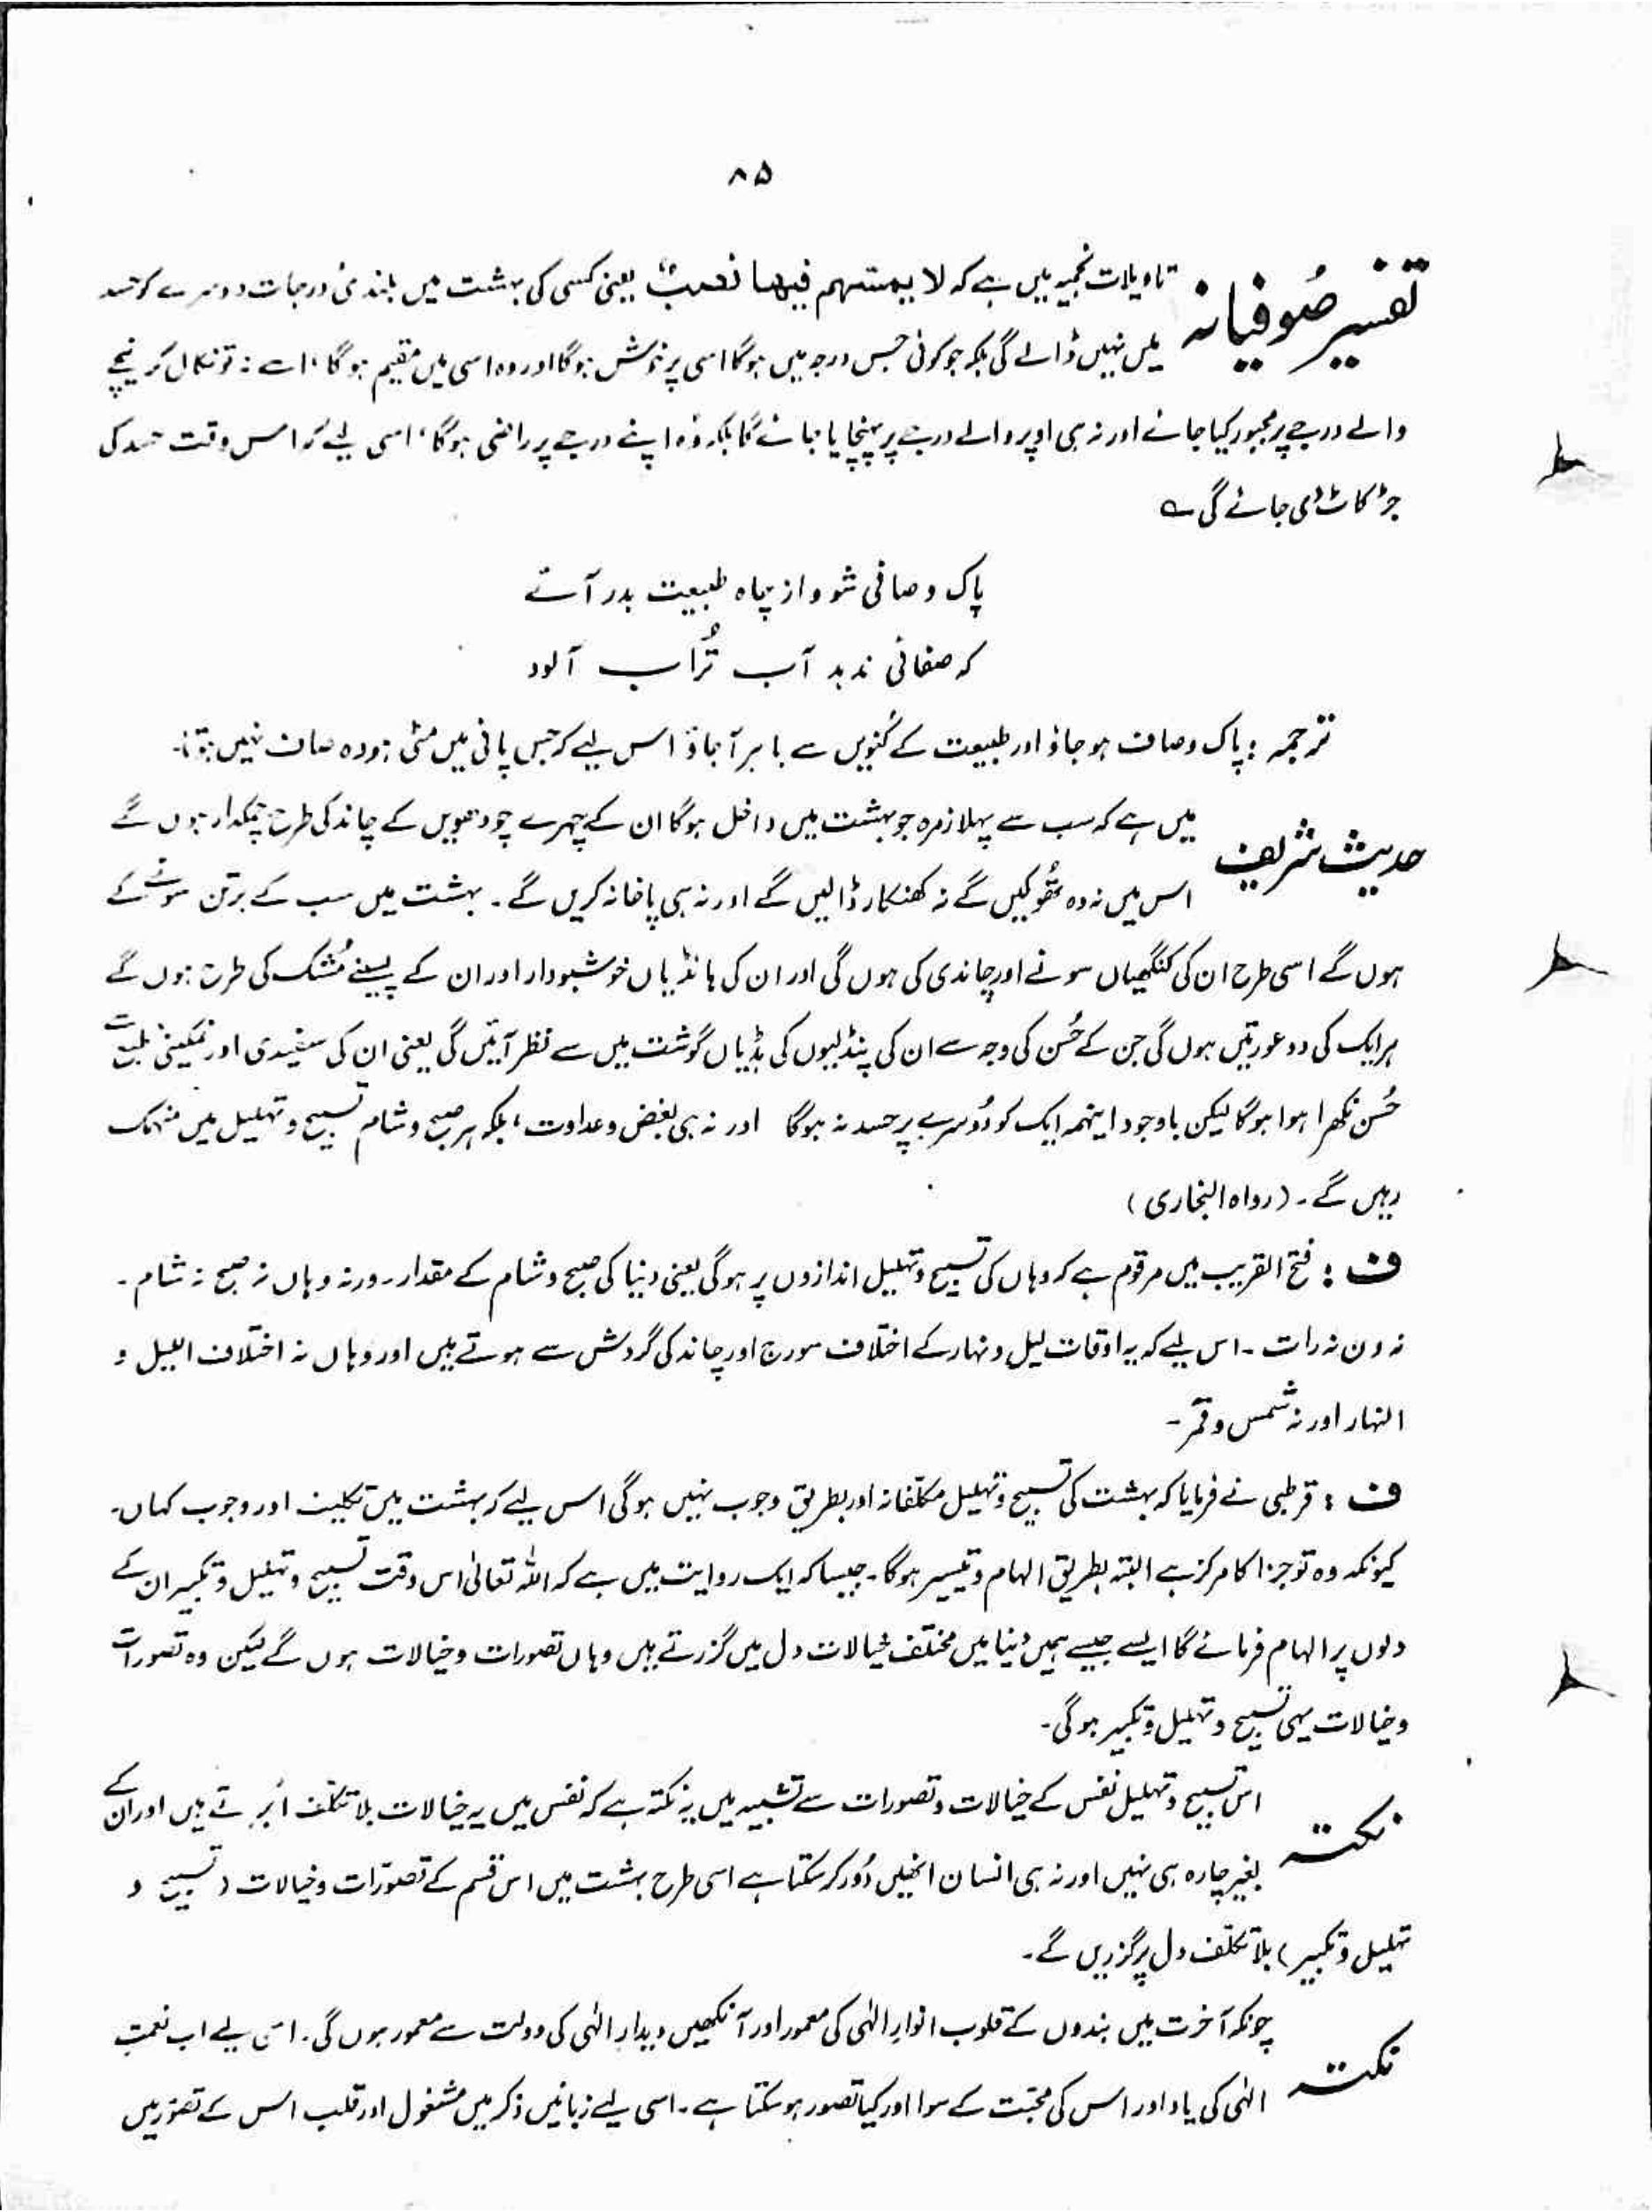 ۸۵
تفسیر صُوفیانہ
تاویلات نجمیہ میں ہے کہ لا یمسّہم فیہا نصبٌ یعنی کسی کی بہشت میں بلندیٔ درجات دوسرے کو حسد
میں نہیں ڈالے گی بلکہ جو کوئی جس درجہ میں ہوگا اسی پر خوش ہوگا اور وہ اسی میں مقیم ہوگا، اسے نہ تو نکال کر نیچے
والے درجے پر مجبور کیا جائے اور نہ ہی اوپر والے درجے پر پہنچایا جائے گا بلکہ وُہ اپنے درجے پر راضی ہوگا، اسی لیے کہ اس وقت حسد کی
جڑ کاٹ دی جائے گی ؎
پاک و صافی شو و از چاہ طبیعت بدر آئے
کہ صفائی ندہد آب تُراب آلود
ترجمہ : پاک وصاف ہو جاؤ اور طبیعت کے کنویں سے باہر آجاؤ اس لیے کہ جس پانی میں مٹی ہو وہ صاف نہیں ہوتا۔
حدیث شریف
میں ہے کہ سب سے پہلا زمرہ جو بہشت میں داخل ہوگا ان کے چہرے چودھویں کے چاند کی طرح چمکدار ہوں گے
اس میں نہ وہ تھُوکیں گے نہ کھنکار ڈالیں گے اور نہ ہی پاخانہ کریں گے۔ بہشت میں سب کے برتن سونے کے
ہوں گے اسی طرح ان کی کنگھیاں سونے اور چاندی کی ہوں گی اور ان کی ہانڈیاں خوشبودار اور ان کے پسینے مُشک کی طرح ہوں گے
ہر ایک کی دو عورتیں ہوں گی جن کے حُسن کی وجہ سے ان کی پنڈلیوں کی ہڈیاں گوشت میں سے نظر آئیں گی یعنی ان کی سفیدی اور نمکینیٔ طبع سے
حُسن نکھرا ہوا ہوگا لیکن باوجود اینہمہ ایک کو دُوسرے پر حسد نہ ہوگا اور نہ ہی بغض و عداوت، بلکہ ہر صبح و شام تسبیح و تہلیل میں منہمک
رہیں گے۔ (رواہ البخاری)
ف : فتح القریب میں مرقوم ہے کہ وہاں کی تسبیح و تہلیل اندازوں پر ہوگی یعنی دنیا کی صبح و شام کے مقدار۔ ورنہ وہاں نہ صبح نہ شام۔
نہ دن نہ رات۔ اس لیے کہ یہ اوقات لیل و نہار کے اختلاف سورج اور چاند کی گردش سے ہوتے ہیں اور وہاں نہ اختلاف اللیل و
النہار اور نہ شمس و قمر۔
ف : قرطبی نے فرمایا کہ بہشت کی تسبیح و تہلیل مکلفانہ اور بطریق وجوب نہیں ہوگی اس لیے کہ بہشت میں تکلیف اور وجوب کہاں۔
کیونکہ وہ تو جزا کا مرکز ہے البتہ بطریق الہام و تیسیر ہوگا۔ جیسا کہ ایک روایت میں ہے کہ اللہ تعالیٰ اس وقت تسبیح و تہلیل و تکبیر ان کے
دلوں پر الہام فرمائے گا ایسے جیسے ہمیں دنیا میں مختلف خیالات دل میں گزرتے ہیں وہاں تصورات و خیالات ہوں گے لیکن وہ تصورات
و خیالات یہی تسبیح و تہلیل و تکبیر ہوگی۔
نکتہ
اس تسبیح و تہلیل نفس کے خیالات و تصورات سے تشبیہ میں یہ نکتہ ہے کہ نفس میں یہ خیالات بلا تکلف اُبھرتے ہیں اور ان کے
بغیر چارہ ہی نہیں اور نہ ہی انسان انھیں دُور کر سکتا ہے اسی طرح بہشت میں اس قسم کے تصوّرات و خیالات (تسبیح و
تہلیل و تکبیر) بلا تکلف دل پر گزریں گے۔
نکتہ
چونکہ آخرت میں بندوں کے قلوب انوارِ الٰہی کی معمور اور آنکھیں دیدارِ الٰہی کی دولت سے معمور ہوں گی۔ اس لیے اب نعمت
الٰہی کی یاد اور اس کی محبّت کے سوا اور کیا تصور ہوسکتا ہے۔ اسی لیے زبانیں ذکر میں مشغول اور قلب اس کے تصوّر میں